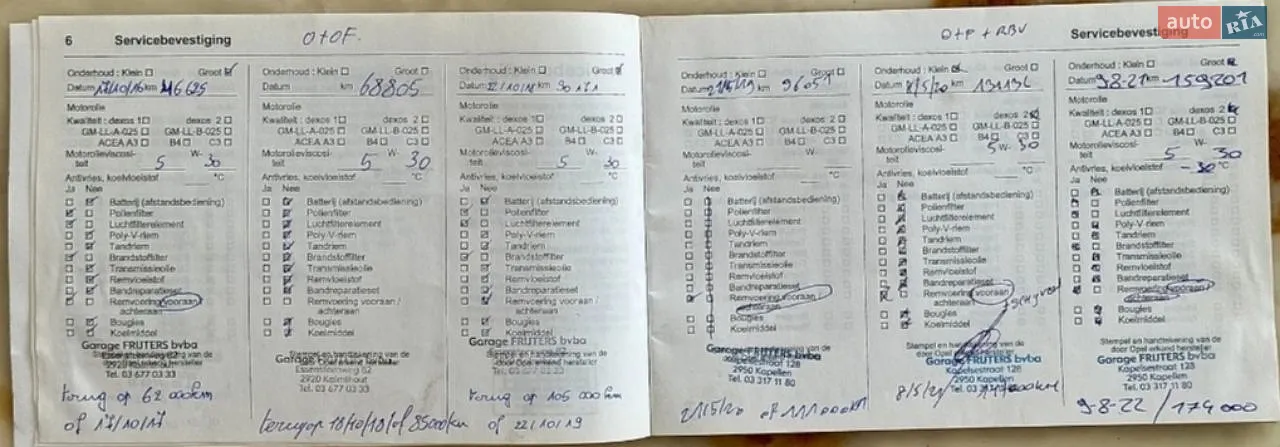 auto RIA .com
6 Servicebevestiging O+OF.
Onderhoud : Klein Groot
Datum 17/10/16 km 46625
Motorolie
Kwaliteit : dexos 1 dexos 2
GM-LL-A-025 GM-LL-B-025
ACEA A3 B4 C3
Motorolieviscosi- W-
teit 5 30
Antivries, koelvloeistof °C
Ja Nee
Batterij (afstandsbediening)
Pollenfilter
Luchtfilterelement
Poly-V-riem
Tandriem
Brandstoffilter
Transmissieolie
Remvloeistof
Bandreparatieset
Remvoering vooraan /
achteraan
Bougies
Koelmiddel
Garage FRIJTERS bvba
2920 Kalmthout
Tel. 03 677 03 33
terug op 62 000km
of 17/10/17
Onderhoud : Klein Groot
Datum km 68805
Motorolie
Kwaliteit : dexos 1 dexos 2
GM-LL-A-025 GM-LL-B-025
ACEA A3 B4 C3
Motorolieviscosi- W-
teit 5 30
Antivries, koelvloeistof °C
Ja Nee
Batterij (afstandsbediening)
Pollenfilter
Luchtfilterelement
Poly-V-riem
Tandriem
Brandstoffilter
Transmissieolie
Remvloeistof
Bandreparatieset
Remvoering vooraan /
achteraan
Bougies
Koelmiddel
2920 Kalmthout
Tel. 03 677 03 33
terug op 18/10/18 of 85000km
Onderhoud : Klein Groot
Datum 22/10/18 km 90171
Motorolie
Kwaliteit : dexos 1 dexos 2
GM-LL-A-025 GM-LL-B-025
ACEA A3 B4 C3
Motorolieviscosi- W-
teit 5 30
Antivries, koelvloeistof °C
Ja Nee
Batterij (afstandsbediening)
Pollenfilter
Luchtfilterelement
Poly-V-riem
Tandriem
Brandstoffilter
Transmissieolie
Remvloeistof
Bandreparatieset
Remvoering vooraan /
achteraan
Bougies
Koelmiddel
Garage FRIJTERS bvba
Stempel en handtekening van de
door Opel erkend hersteller
Tel. 03 677 03 33
terug op 105 000 km
of 22/10/19
O+P + RBV Servicebevestiging
Onderhoud : Klein Groot
Datum 21/5/19 km 96051
Motorolie
Kwaliteit : dexos 1 dexos 2
GM-LL-A-025 GM-LL-B-025
ACEA A3 B4 C3
Motorolieviscosi- W-
teit
Antivries, koelvloeistof °C
Ja Nee
Batterij (afstandsbediening)
Pollenfilter
Luchtfilterelement
Poly-V-riem
Tandriem
Brandstoffilter
Transmissieolie
Remvloeistof
Bandreparatieset
Remvoering vooraan
achteraan
Bougies
Koelmiddel
Garage FRIJTERS bvba
Kapelsestraat 128
2950 Kapellen
Tel. 03 317 11 80
21/5/20 of 111000km
Onderhoud : Klein Groot
Datum 8/5/20 km
Motorolie
Kwaliteit : dexos 1 dexos 2
GM-LL-A-025 GM-LL-B-025
ACEA A3 B4 C3
Motorolieviscosi- 5 W- 30
teit
Antivries, koelvloeistof °C
Ja Nee
Batterij (afstandsbediening)
Pollenfilter
Luchtfilterelement
Poly-V-riem
Tandriem
Brandstoffilter
Transmissieolie
Remvloeistof
Bandreparatieset
Remvoering vooraan
achteraan
Bougies
Koelmiddel
Stempel en handtekening van de
door Opel erkend hersteller
Garage FRIJTERS bvba
Kapelsestraat 128
2950 Kapellen
Tel. 03 317 11 80
8/5/21
Onderhoud : Klein Groot
Datum 9-8-21 km 159201
Motorolie
Kwaliteit : dexos 1 dexos 2
GM-LL-A-025 GM-LL-B-025
ACEA A3 B4 C3
Motorolieviscosi- W-
teit 5 30
Antivries, koelvloeistof -30 °C
Ja Nee
Batterij (afstandsbediening)
Pollenfilter
Luchtfilterelement
Poly-V-riem
Tandriem
Brandstoffilter
Transmissieolie
Remvloeistof
Bandreparatieset
Remvoering vooraan
achteraan
Bougies
Koelmiddel
Stempel en handtekening van de
door Opel erkend hersteller
Garage FRIJTERS bvba
Kapelsestraat 128
2950 Kapellen
Tel. 03 317 11 80
9-8-22 / 174 000